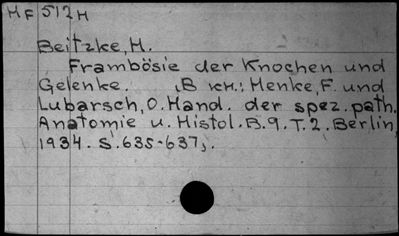 HF 512H
Beitzke, H.
Frambösie der Knochen und
Gelenke. „В кн.: Henke, F. und
Lubarsch, O. Hand. der spez. path.
Anatomie u. Histol. B. 9. T. 2. Berlin,
1934. S. 635-637„.